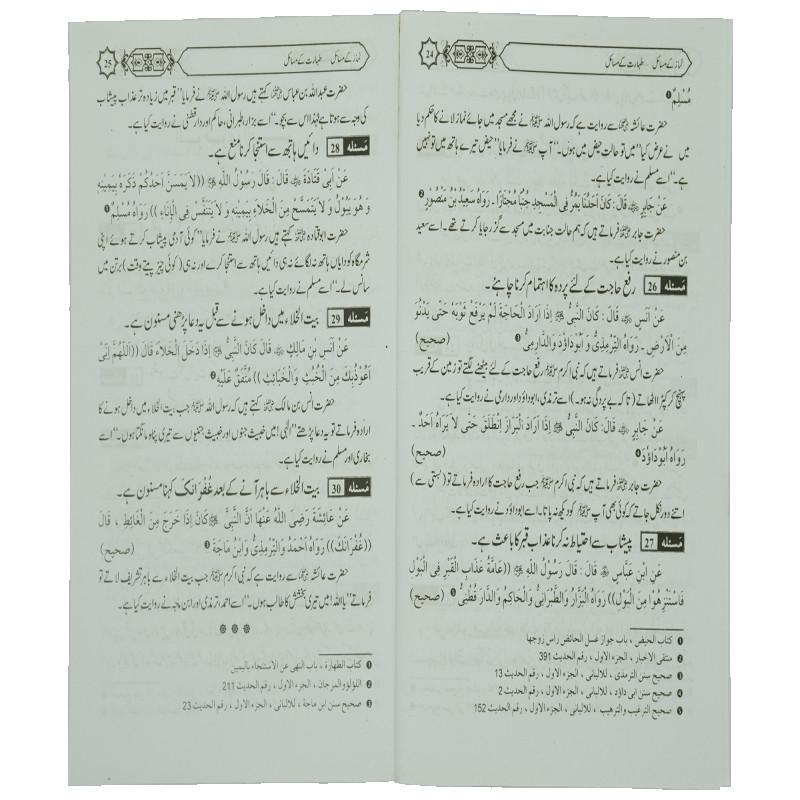 نماز کے مسائل ... طہارت کے مسائل
24
مُسْلِمٌ ❶
حضرت عائشہ ؓ سے روایت ہے کہ رسول اللہ ﷺ نے مجھے مسجد میں جائے نماز لانے کا حکم دیا
میں نے عرض کیا "میں تو حالت حیض میں ہوں۔" آپ ﷺ نے فرمایا "حیض تیرے ہاتھ میں تو نہیں
ہے۔" اسے مسلم نے روایت کیا ہے۔
عَنْ جَابِرٍ ؓ قَالَ : كَانَ اَحَدُنَا يَمُرُّ فِى الْمَسْجِدِ جُنُبًا مُجْتَازًا . رَوَاهُ سَعِيْدُ بْنُ مَنْصُوْرٍ ❷
حضرت جابر ؓ فرماتے ہیں کہ ہم حالت جنابت میں مسجد سے گزر جایا کرتے تھے۔ اسے سعید
بن منصور نے روایت کیا ہے۔
مسئلہ 26 رفع حاجت کے لئے پردہ کا اہتمام کرنا چاہئے۔
عَنْ اَنَسٍ ؓ قَالَ : كَانَ النَّبِىُّ ﷺ اِذَا اَرَادَ الْحَاجَةَ لَمْ يَرْفَعْ ثَوْبَهُ حَتّٰى يَدْنُوَ
مِنَ الْاَرْضِ . رَوَاهُ التِّرْمِذِىُّ وَ اَبُوْدَاوُدَ وَالدَّارِمِىُّ ❸ (صحيح)
حضرت انس ؓ فرماتے ہیں کہ نبی اکرم ﷺ رفع حاجت کے لئے بیٹھنے لگتے تو زمین کے قریب
پہنچ کر کپڑا اٹھاتے (تاکہ بے پردگی نہ ہو)۔ اسے ترمذی، ابوداؤد اور دارمی نے روایت کیا ہے۔
عَنْ جَابِرٍ ؓ قَالَ : كَانَ النَّبِىُّ ﷺ اِذَا اَرَادَ الْبَرَازَ اِنْطَلَقَ حَتّٰى لاَ يَرَاهُ اَحَدٌ .
رَوَاهُ اَبُوْدَاوُدَ ❹ (صحيح)
حضرت جابر ؓ فرماتے ہیں کہ نبی اکرم ﷺ جب رفع حاجت کا ارادہ فرماتے تو (بستی سے)
اتنے دور نکل جاتے کہ کوئی بھی آپ ﷺ کو دیکھ نہ پاتا۔ اسے ابوداؤد نے روایت کیا ہے۔
مسئلہ 27 پیشاب سے احتیاط نہ کرنا عذاب قبر کا باعث ہے۔
عَنِ ابْنِ عَبَّاسٍ ؓ قَالَ : قَالَ رَسُوْلُ اللّٰهِ ﷺ ((عَامَّةُ عَذَابِ الْقَبْرِ فِى الْبَوْلِ
فَاسْتَنْزِهُوْا مِنَ الْبَوْلِ)) رَوَاهُ الْبَزَّارُ وَالطَّبْرَانِىُّ وَالْحَاكِمُ وَالدَّارَ قُطْنِىُّ ❺ (صحيح)
❶ كتاب الحيض ، باب جواز غسل الحائض راس زوجها
❷ منتقى الاخبار ، الجزء الاول ، رقم الحديث 391
❸ صحيح سنن الترمذى ، للالبانى ، الجزء الاول ، رقم الحديث 13
❹ صحيح سنن ابى داؤد ، للالبانى ، الجزء الاول ، رقم الحديث 2
❺ صحيح الترغيب والترهيب ، للالبانى ، الجزء الاول ، رقم الحديث 152
نماز کے مسائل ... طہارت کے مسائل
25
حضرت عبداللہ بن عباس ؓ کہتے ہیں رسول اللہ ﷺ نے فرمایا "قبر میں زیادہ تر عذاب پیشاب
کی وجہ سے ہوتا ہے لہٰذا اس سے بچو۔" اسے بزار، طبرانی، حاکم اور دارقطنی نے روایت کیا ہے۔
مسئلہ 28 دائیں ہاتھ سے استنجا کرنا منع ہے۔
عَنْ اَبِىْ قَتَادَةَ ؓ قَالَ : قَالَ رَسُوْلُ اللّٰهِ ﷺ ((لاَ يَمْسَنَّ اَحَدُكُمْ ذَكَرَهُ بِيَمِيْنِهِ
وَ هُوَ يَبُوْلُ وَ لاَ يَتَمَسَّحْ مِنَ الْخَلاَءِ بِيَمِيْنِهِ وَ لاَ يَتَنَفَّسْ فِى الْاِنَاءِ )) رَوَاهُ مُسْلِمٌ ❶
حضرت ابوقتادہ ؓ کہتے ہیں رسول اللہ ﷺ نے فرمایا "کوئی آدمی پیشاب کرتے ہوئے اپنی
شرمگاہ کو دایاں ہاتھ نہ لگائے نہ ہی دائیں ہاتھ سے استنجا کرے اور نہ ہی (کوئی چیز پیتے وقت) برتن میں
سانس لے۔" اسے مسلم نے روایت کیا ہے۔
مسئلہ 29 بیت الخلاء میں داخل ہونے سے قبل یہ دعا پڑھنی مسنون ہے۔
عَنْ اَنَسِ بْنِ مَالِكٍ ؓ قَالَ كَانَ النَّبِىُّ ﷺ اِذَا دَخَلَ الْخَلاَءَ قَالَ ((اَللّٰهُمَّ اِنِّىْ
اَعُوْذُبِكَ مِنَ الْخُبُثِ وَالْخَبَائِثِ )) مُتَّفَقٌ عَلَيْهِ ❷
حضرت انس بن مالک ؓ کہتے ہیں کہ رسول اللہ ﷺ جب بیت الخلاء میں داخل ہونے کا
ارادہ فرماتے تو یہ دعا پڑھتے "الٰہی! میں خبیث جنوں اور خبیث جنیوں سے تیری پناہ مانگتا ہوں۔" اسے
بخاری اور مسلم نے روایت کیا ہے۔
مسئلہ 30 بیت الخلاء سے باہر آنے کے بعد غُفْرَانَكَ کہنا مسنون ہے۔
عَنْ عَائِشَةَ رَضِىَ اللّٰهُ عَنْهَا اَنَّ النَّبِىَّ ﷺ كَانَ اِذَا خَرَجَ مِنَ الْغَائِطِ ، قَالَ
((غُفْرَانَكَ)) رَوَاهُ اَحْمَدُ وَالتِّرْمِذِىُّ وَابْنُ مَاجَةَ ❸ (صحيح)
حضرت عائشہ ؓ سے روایت ہے کہ نبی اکرم ﷺ جب بیت الخلاء سے باہر تشریف لاتے تو
فرماتے "یا اللہ! میں تیری بخشش کا طالب ہوں۔" اسے احمد، ترمذی اور ابن ماجہ نے روایت کیا ہے۔
❋ ❋ ❋
❶ كتاب الطهارة ، باب النهى عن الاستنجاء باليمين
❷ اللؤلؤ والمرجان ، الجزء الاول ، رقم الحديث 211
❸ صحيح سنن ابن ماجة ، للالبانى ، الجزء الاول ، رقم الحديث 23